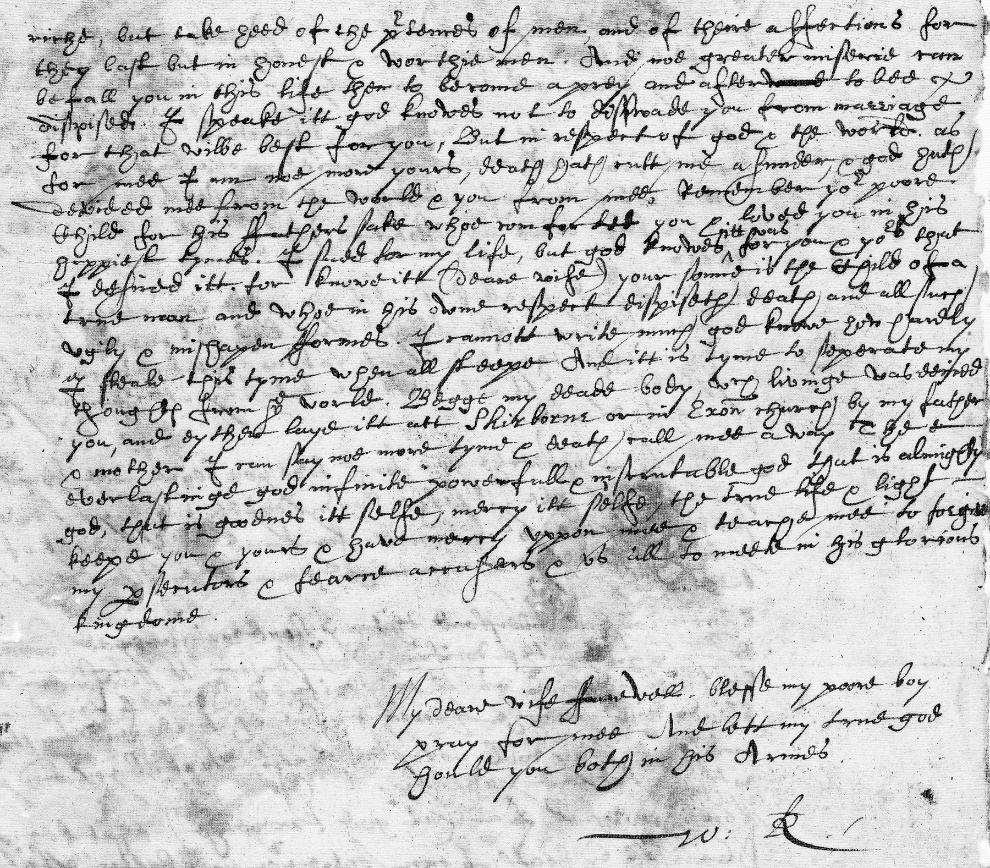 riche, but take heed of the p^rtences of men and of theire affections for
they last but in honest & worthie men. And noe greater miserie can
befall you in this life then to become a prey and after to bee
dispised. I speake itt god knowes not to disswade you from marriage
for that wilbe best for you, But in respect of god & the world. as
for mee I am noe more yours, death hath cutt me asunder, & god hath
devided mee from the world & you from mee, Remember yo^r poore
Child for his ffathers sake whoe comforted you & loved you in his
happiest tymes. I sued for my life, but god knowes itt was for you & yo^rs that
I desired itt. for knowe itt (deare wife) your sonne is the Child of a
true man and whoe in his owne respect dispiseth death and all such
vgly & mishapen formes. I cannott write much, god knowe how hardly
I steale this tyme when all sleepe And itt is tyme to seperate my
thoughts from y^e world. Begge my deade body w^ch livinge was denied
you, and eyther laye itt att Shirborne or in Exon church by my father
& mother I can say noe more tyme & death call mee away The
everlastinge god infinite powerfull & inscrutable god that is almighty
god, that is goodnes itt selfe, mercy itt selfe, the true life & light
keepe you & yours & have mercy vppon mee & teache mee to forgive
my psecutors & fearce accusers & vs all to meete in his glorious
kingdome.
My deare wife farewell. blesse my poore boy
pray for mee And lett my true god
hould you both in his Armes
W: R